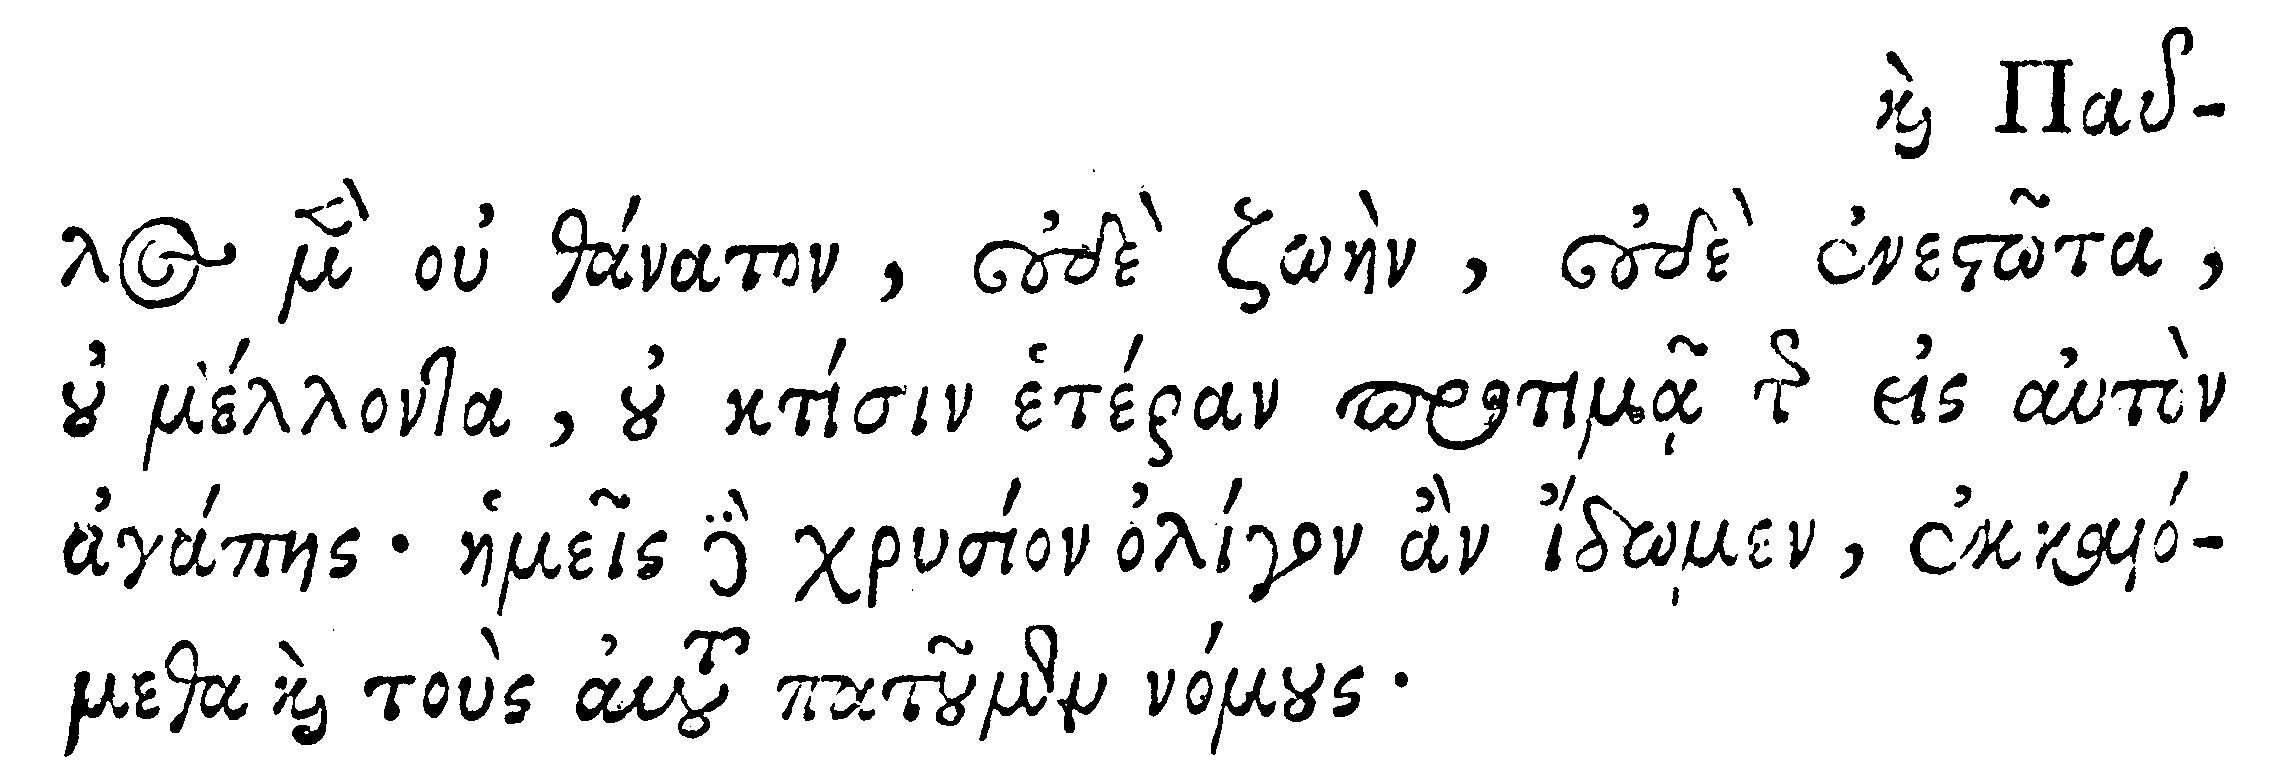 καὶ Παῦ-
λος μὲν οὐ θάνατον, οὐδὲ ζωὴν, οὐδὲ ἐνεστῶτα,
οὐ μέλλοντα, οὐ κτίσιν ἑτέραν προτιμᾷ τῆς εἰς αὐτὸν
ἀγάπης· ἡμεῖς δὲ χρυσίον ὀλίγον ἂν ἴδωμεν,
μεθα καὶ τοὺς αὐτοῦ πατοῦμεν νόμους.